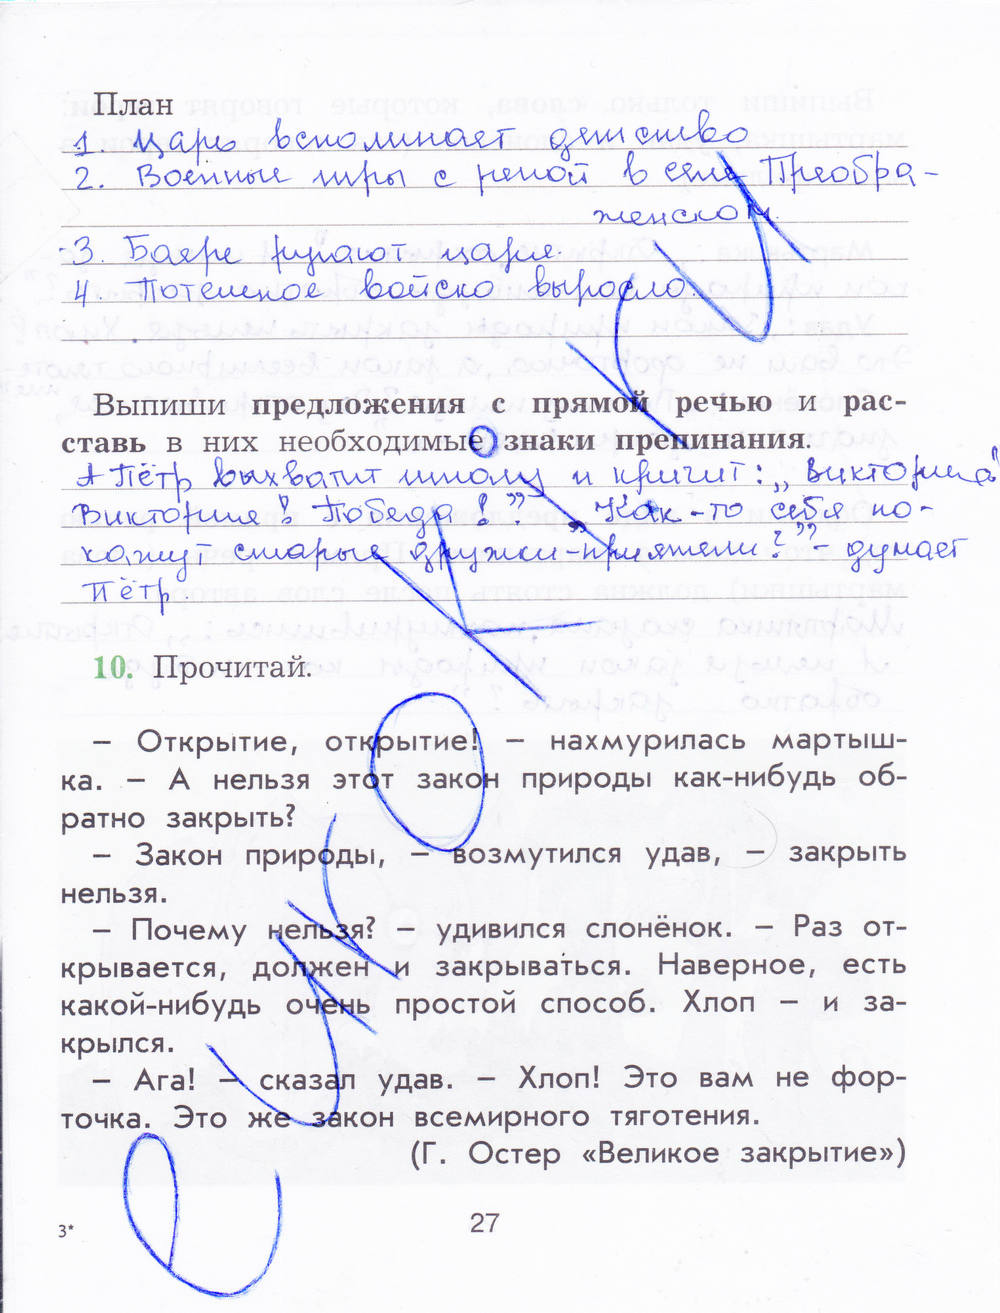 План
1. Царь вспоминает детство
2. Военные игры с репой в селе Преобра-
женском.
3. Бояре ругают царя.
4 Потешное войско выросло.
Выпиши предложения с прямой речью и рас-
ставь в них необходимые знаки препинания.
А Пётр выхватит шпагу и кричит: „Виктория"
Виктория! Победа!" Как-то себя по-
кажут старые дружки-приятели?" - думает
Пётр
10. Прочитай.
– Открытие, открытие! – нахмурилась мартыш-
ка. – А нельзя этот закон природы как-нибудь об-
ратно закрыть?
– Закон природы, – возмутился удав, – закрыть
нельзя.
– Почему нельзя? – удивился слонёнок. – Раз от-
крывается, должен и закрываться. Наверное, есть
какой-нибудь очень простой способ. Хлоп – и за-
крылся.
– Ага! – сказал удав. – Хлоп! Это вам не фор-
точка. Это же закон всемирного тяготения.
(Г. Остер «Великое закрытие»)
3*
27